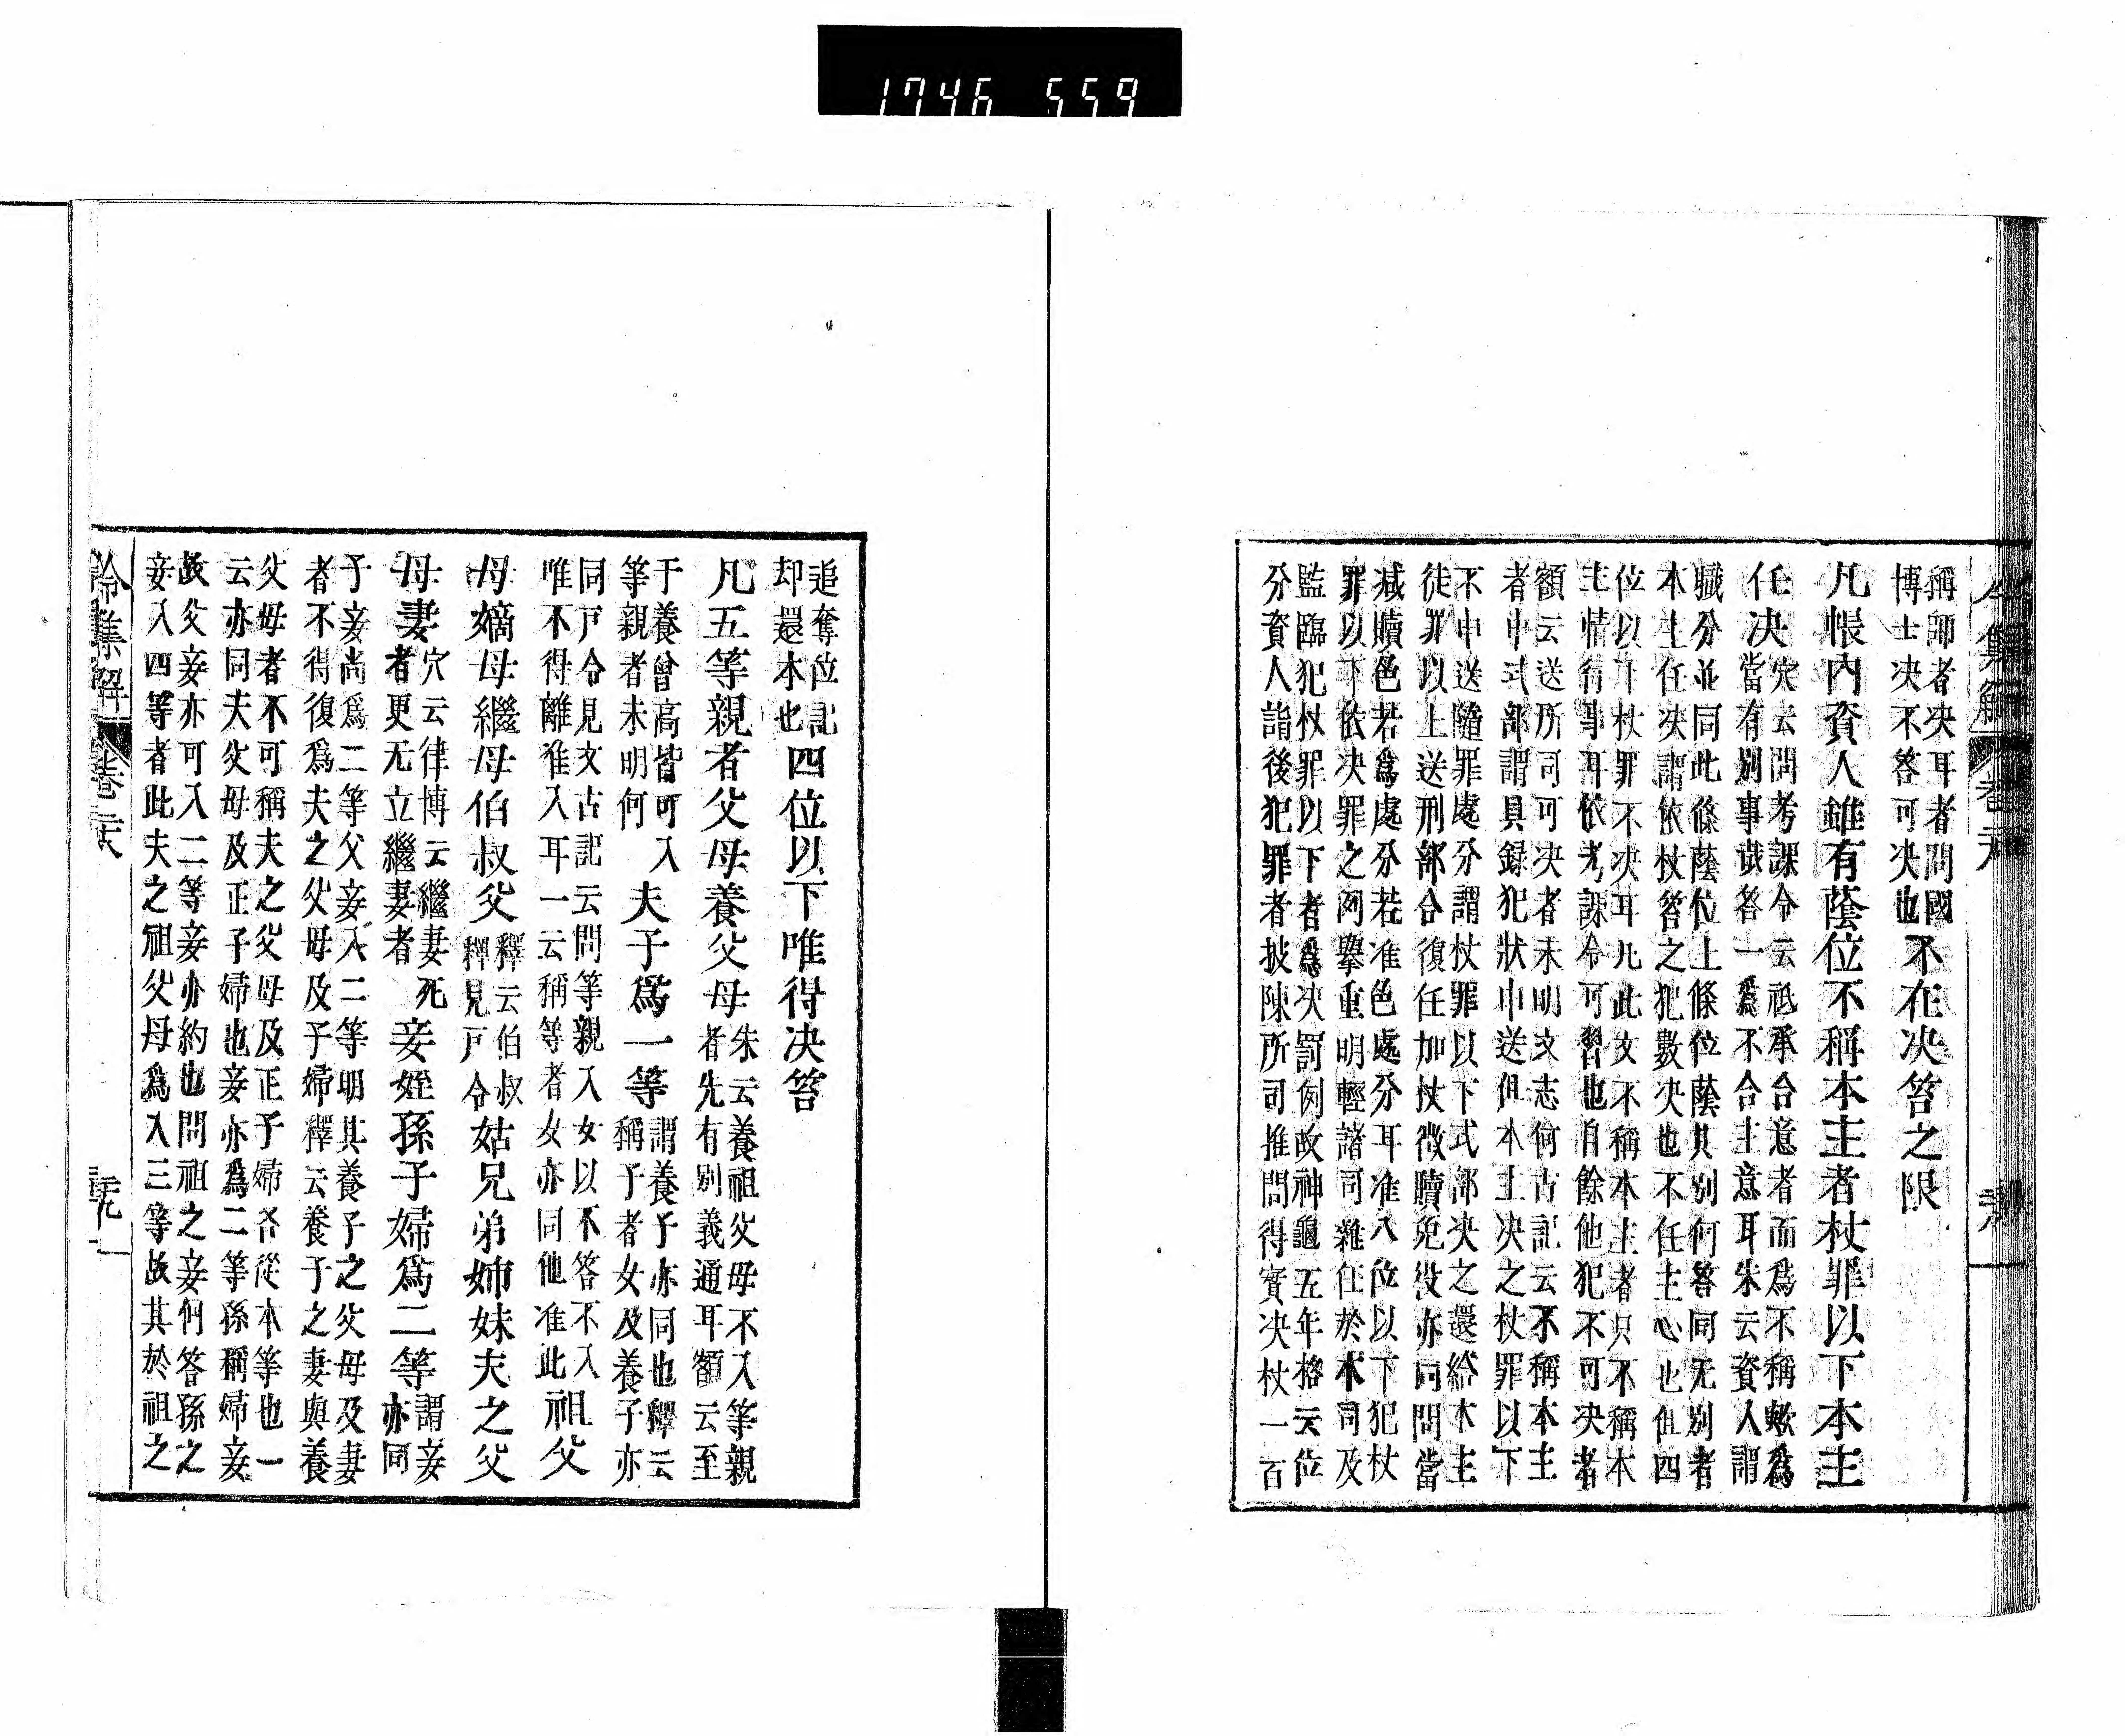 1746 559
稱師者决耳者問國
博士决不答可决也
不在决笞之限
凡帳内資人雖有蔭位不稱本主者杖罪以下本主
任决
穴云問考課令云祗承合意者而爲不稱嗽爲
當有別事哉答一爲不合主意耳朱云資人謂
職分並同此條蔭位上條位蔭其別何答同无別者
本主任决謂依杖笞之犯數决也不任主心也但四
位以下杖罪不决耳凡此文不稱本主者只不稱本
主情行事耳依考課令可習也自餘他犯不可决者
額云送所司可决者未明文志何古記云不稱本主
者申式部謂具録犯狀申送但本主决之杖罪以下
不申送隨罪處分謂杖罪以下式部决之還給本主
徒罪以上送刑部合復任加杖徴贖免役亦同問當
減贖色若爲處分若准色處分耳准八位以下犯杖
罪以下依决罪之例擧重明輕諸司雜任於本司及
監臨犯杖罪以下者爲决罰例故神龜五年格云位
分資人詣後犯罪者披陳所司推問得實决杖一百
追奪位記
却還本也
四位以下唯得决笞
凡五等親者父母養父母
朱云養祖父母不入等親
者先有別義通耳額云至
于養曾高皆可入
等親者未明何
夫子爲一等
謂養子亦同也釋云
稱子者女及養子亦
同戸令見文古記云問等親入女以不答不入
唯不得離准入耳一云稱等者女亦同他准此
祖父
母嫡母繼母伯叔父
釋云伯叔
釋見戸令
姑兄弟姉妹夫之父
母妻
穴云律博云繼妻死
者更无立繼妻者
妾姪孫子婦爲二等
謂妾
亦同
子妾尚爲二等父妾入二等明其養子之父母及妻
者不得復爲夫之父母及子婦釋云養子之妻與養
父母者不可稱夫之父母及正子婦各從本等也一
云亦同夫父母及正子婦也妾亦爲二等孫稱婦妾
故父妾亦可入二等妾亦約也問祖之妾何答孫之
妾入四等者此夫之祖父母爲入三等故其於祖之
令集解